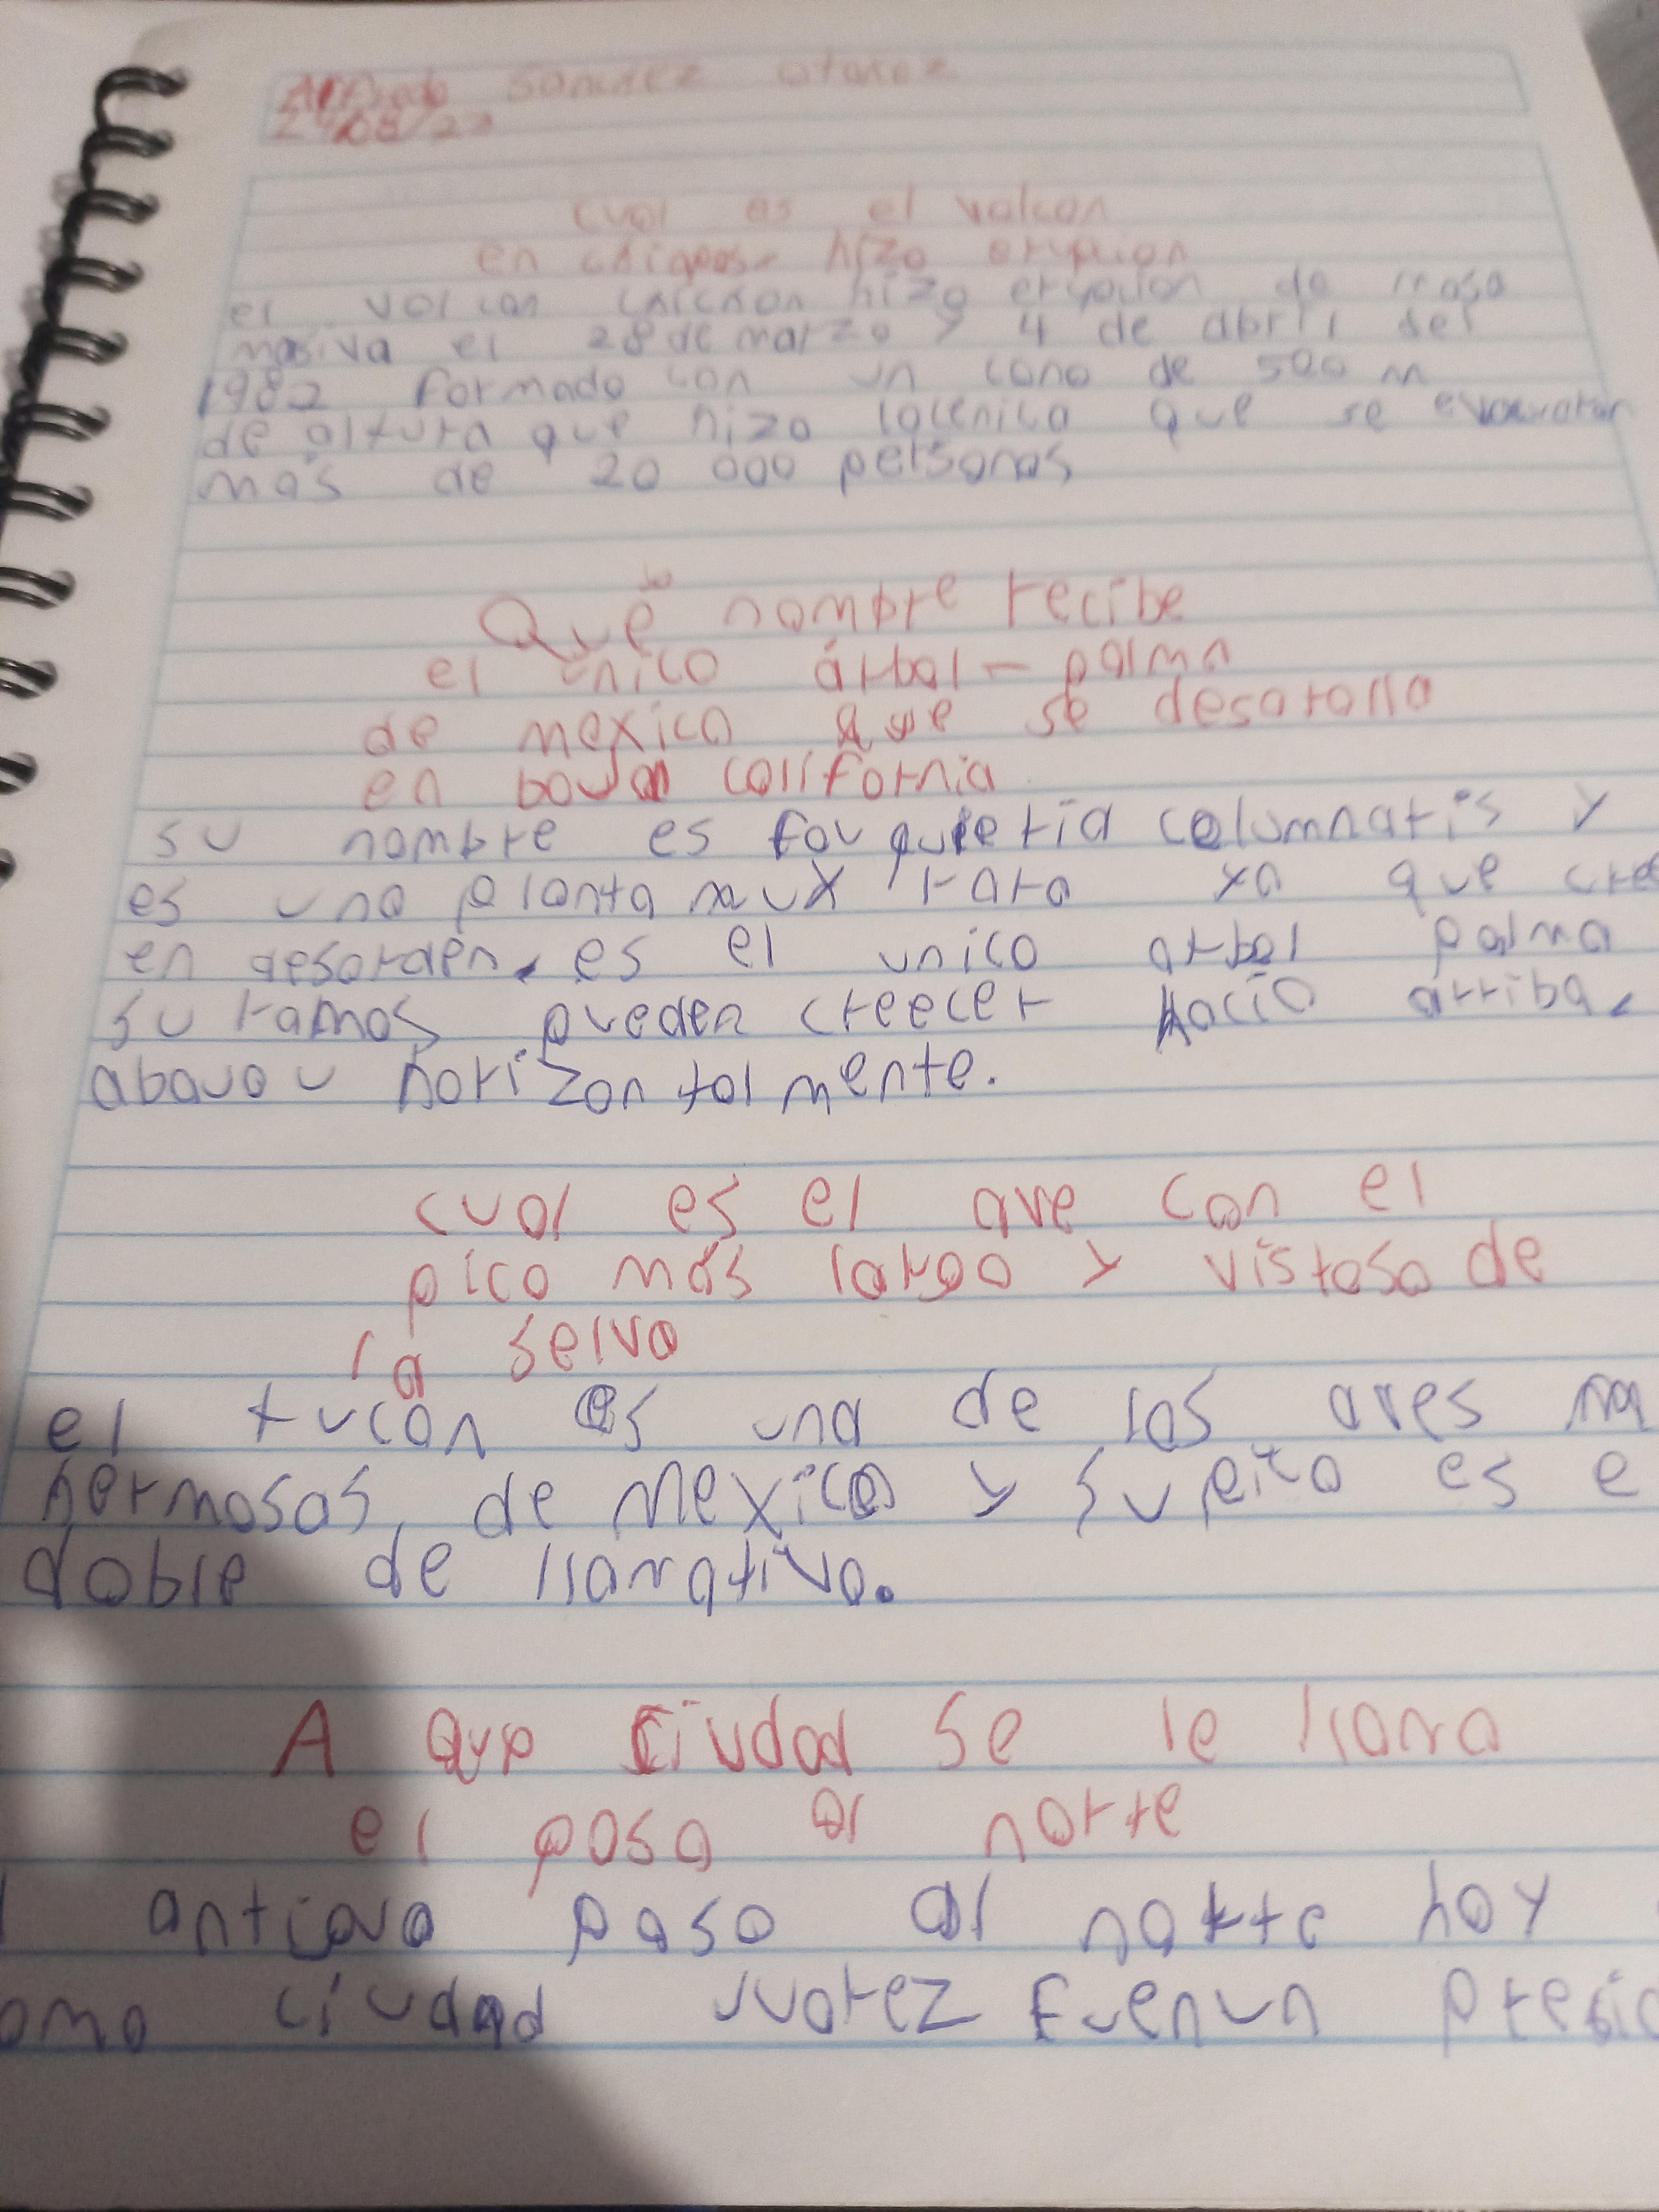 Alfredo Sanchez
24/08/22
cual es el valcan
en chiapas hizo erupcion
el volcan chichon hizo erupcion de
masiva el 28 de marzo y 4 de abril del
1982 formado con un cono de 500 m
de altura que hizo que se
más de 20 000 personas
Qué nombre recibe
el único árbol - palma
de mexico que se desarolla
en bauja california
su nombre es fouquieria columnaris y
es una planta muy rara ya que cre
en desorden, es el unico arbol palma
su ramas pueden creecer hacia arriba,
abauo u horizontalmente.
cual es el ave con el
pico más largo y vistoso de
la selva
el tucán es una de las aves ma
hermosas de Mexico y su pico es e
doble de llamativo.
A que ciudad se le llama
el paso al norte
antiguo paso al norte hoy
omo ciudad uuarez Fue un un presid